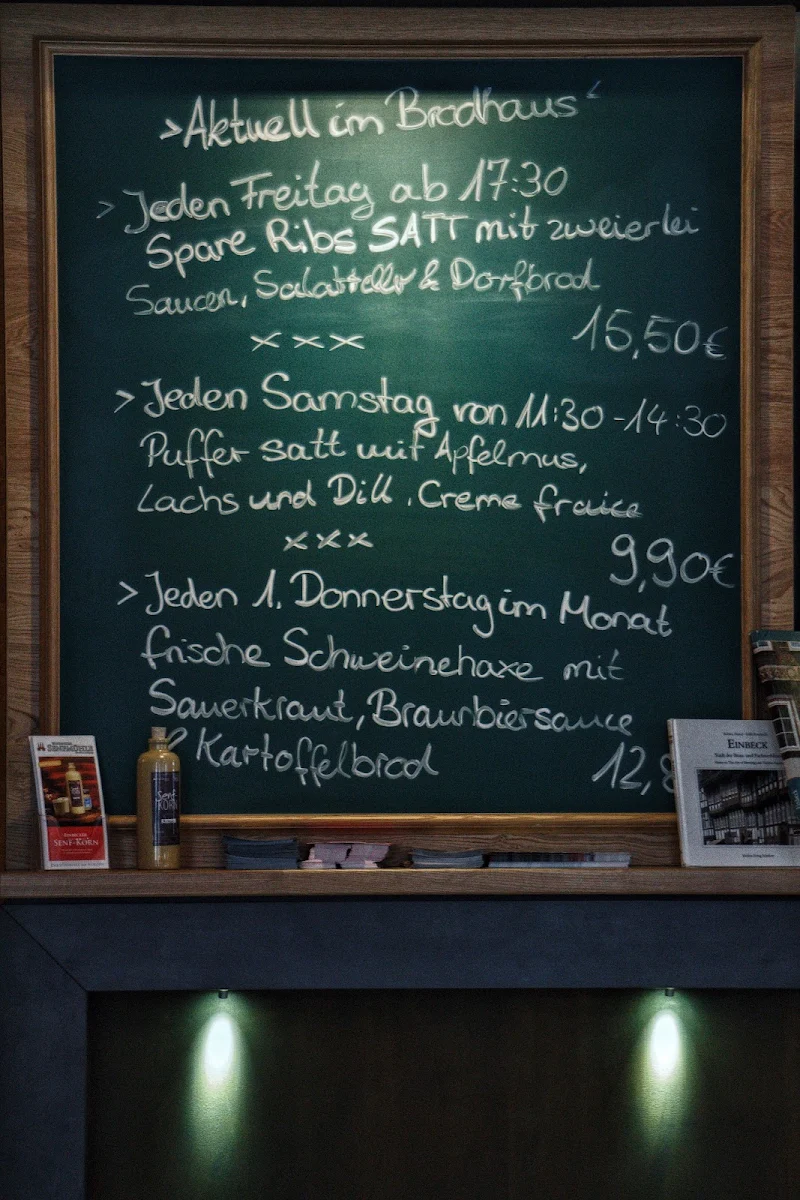 >Aktuell im Brodhaus“
> Jeden Freitag ab 17:30
Spare Ribs SATT mit zweierlei
Saucen, Salatteller & Dorfbrod
xxx
15,50€
> Jeden Samstag von 11:30-14:30
Puffer satt mit Apfelmus,
Lachs und Dill, Creme fraice
xxx
9,90€
> Jeden 1. Donnerstag im Monat
frische Schweinehaxe mit
Sauerkraut, Braunbiersauce
& Kartoffelbrod
12,8
SENFMÜHLE
SENF-KORN
Senf
KORN
EINBECK